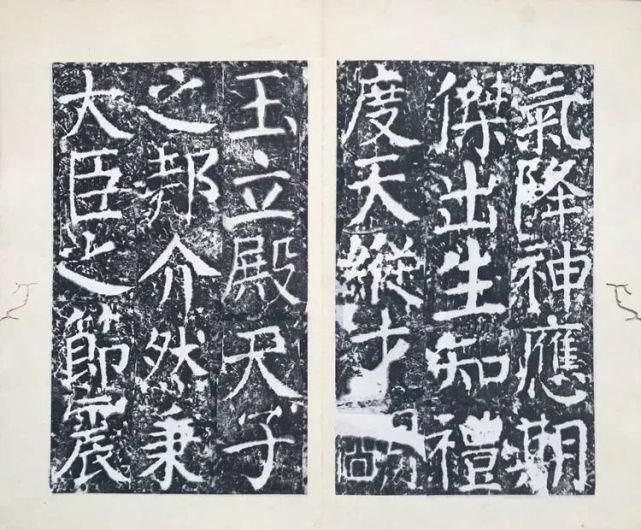 氣降神應期
傑出生知禮
度天縱才明
玉立殿天子
之邦介然秉
大臣之節震